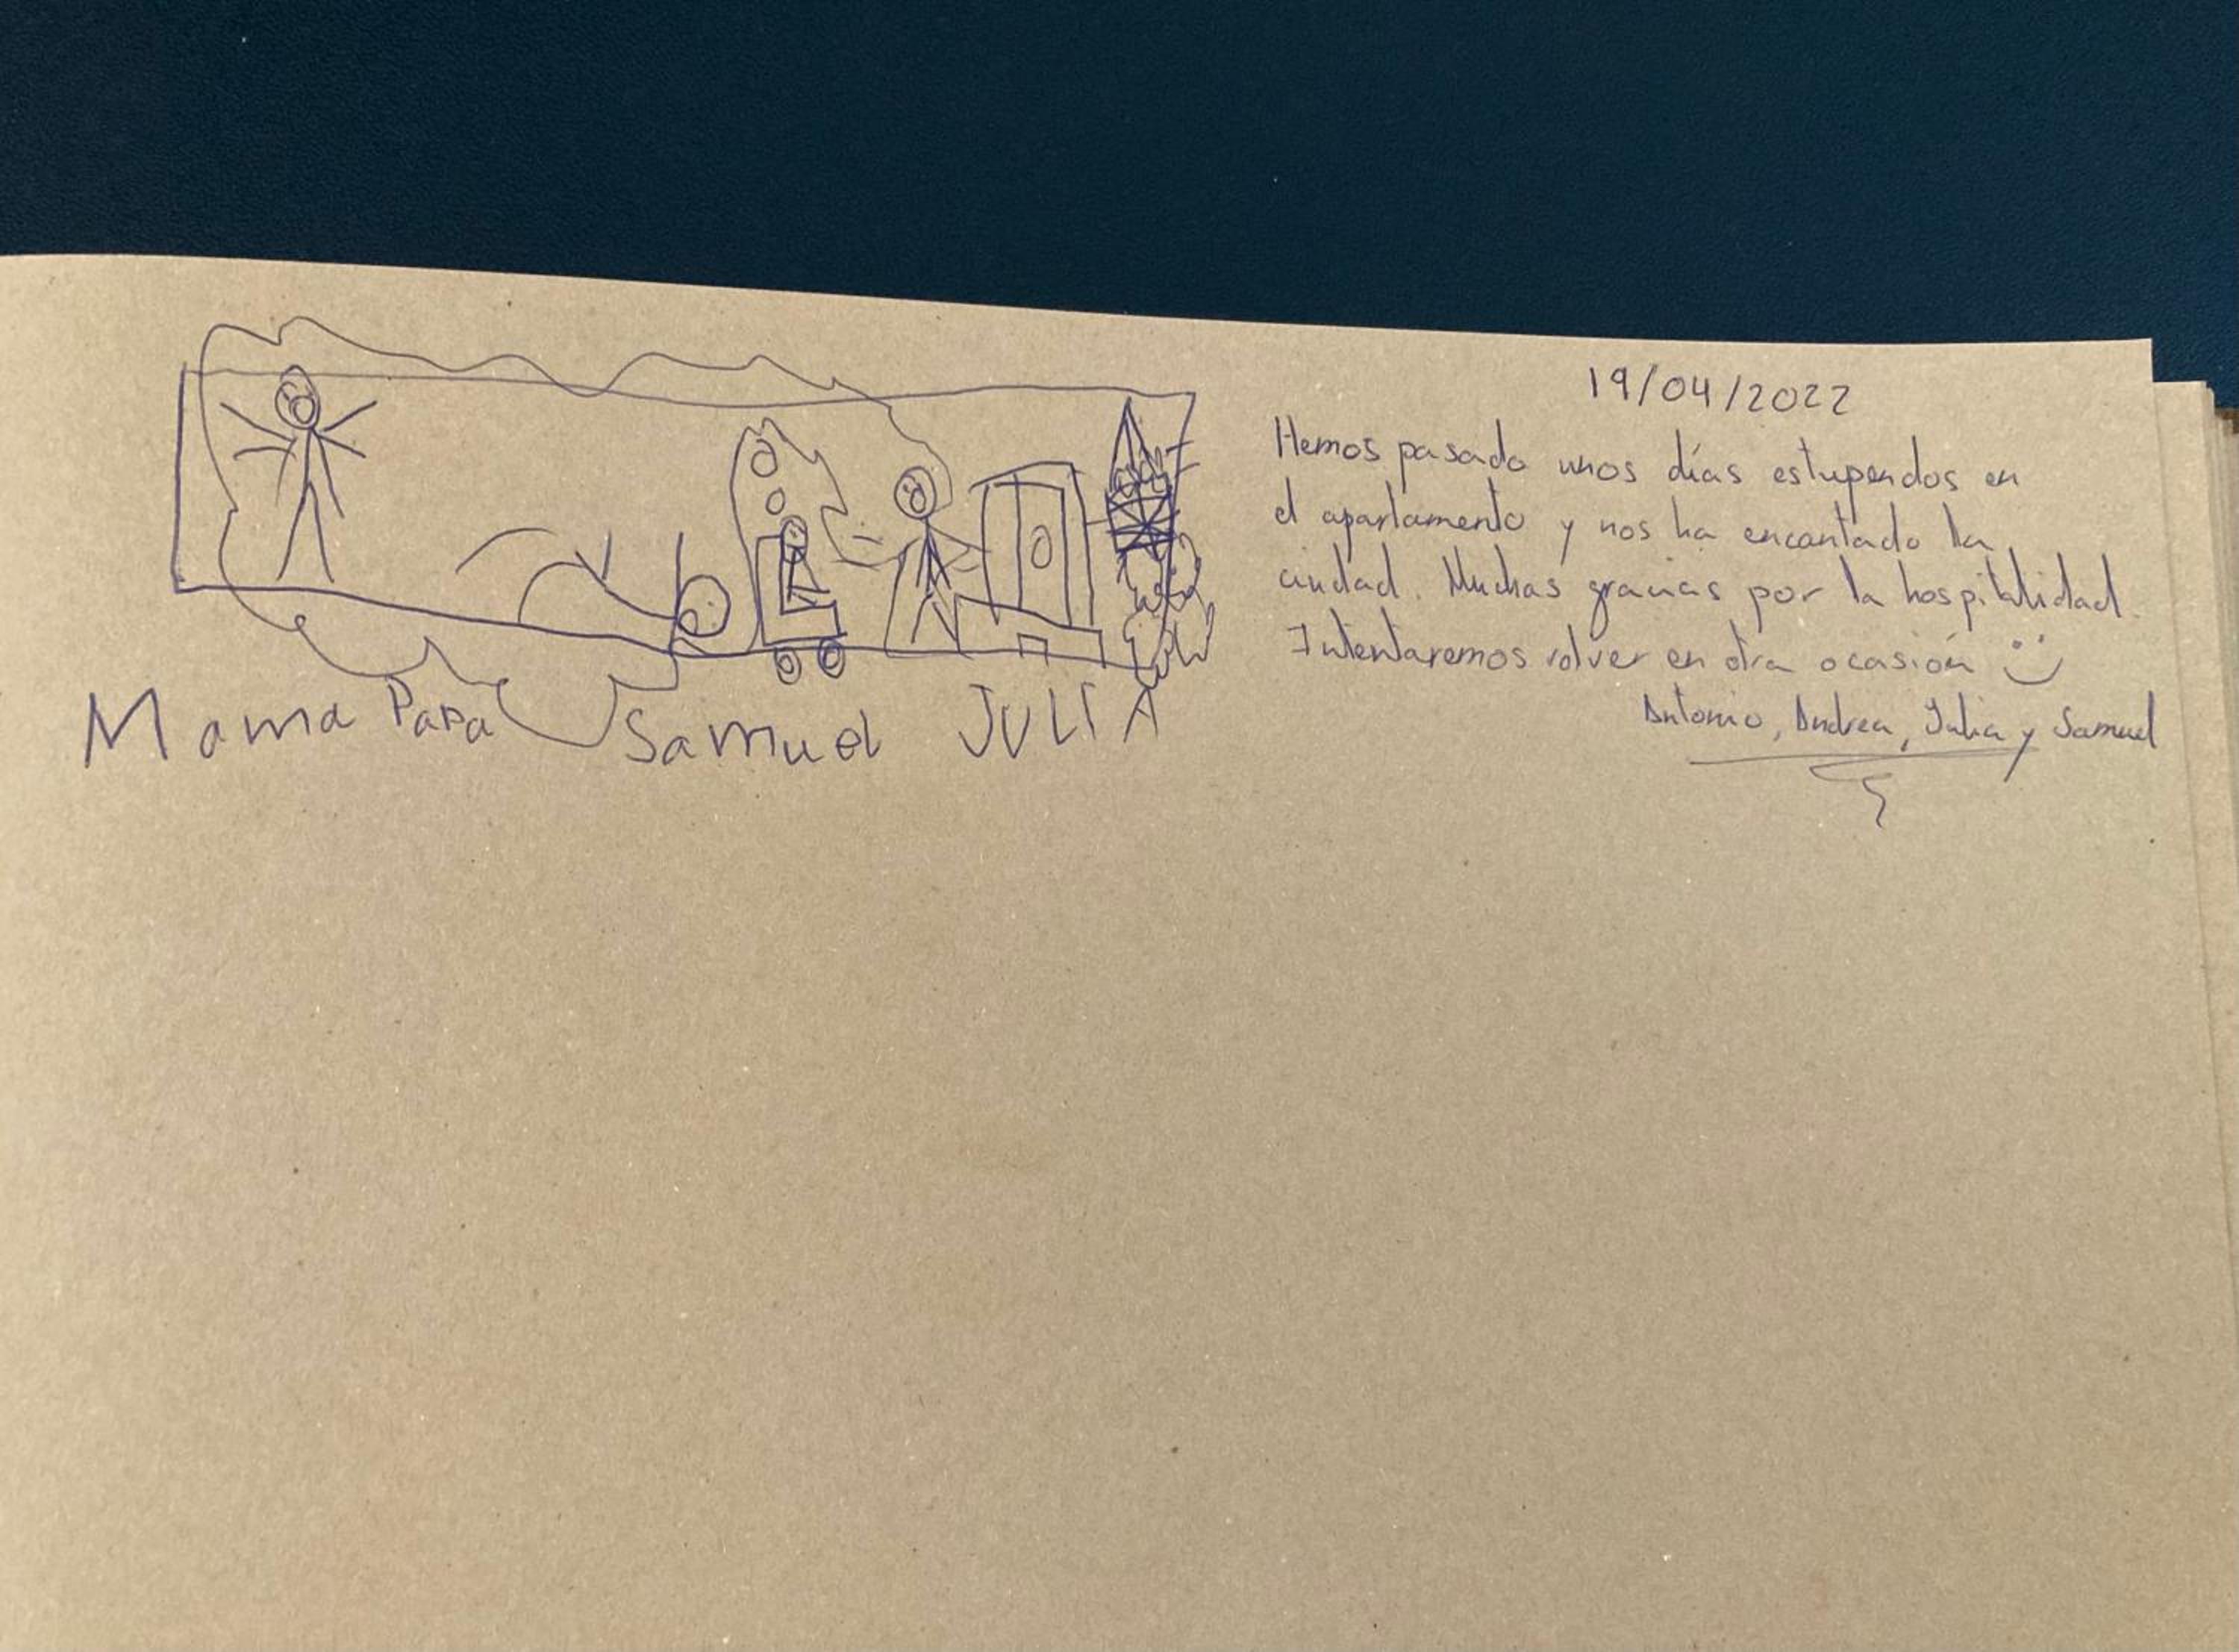 Mama Papa Samuel JULIA
19/04/2022
Hemos pasado unos días estupendos en
el apartamento y nos ha encantado la
ciudad. Muchas gracias por la hospitalidad.
Intentaremos volver en otra ocasión :)
Antonio, Andrea, Julia y Samuel